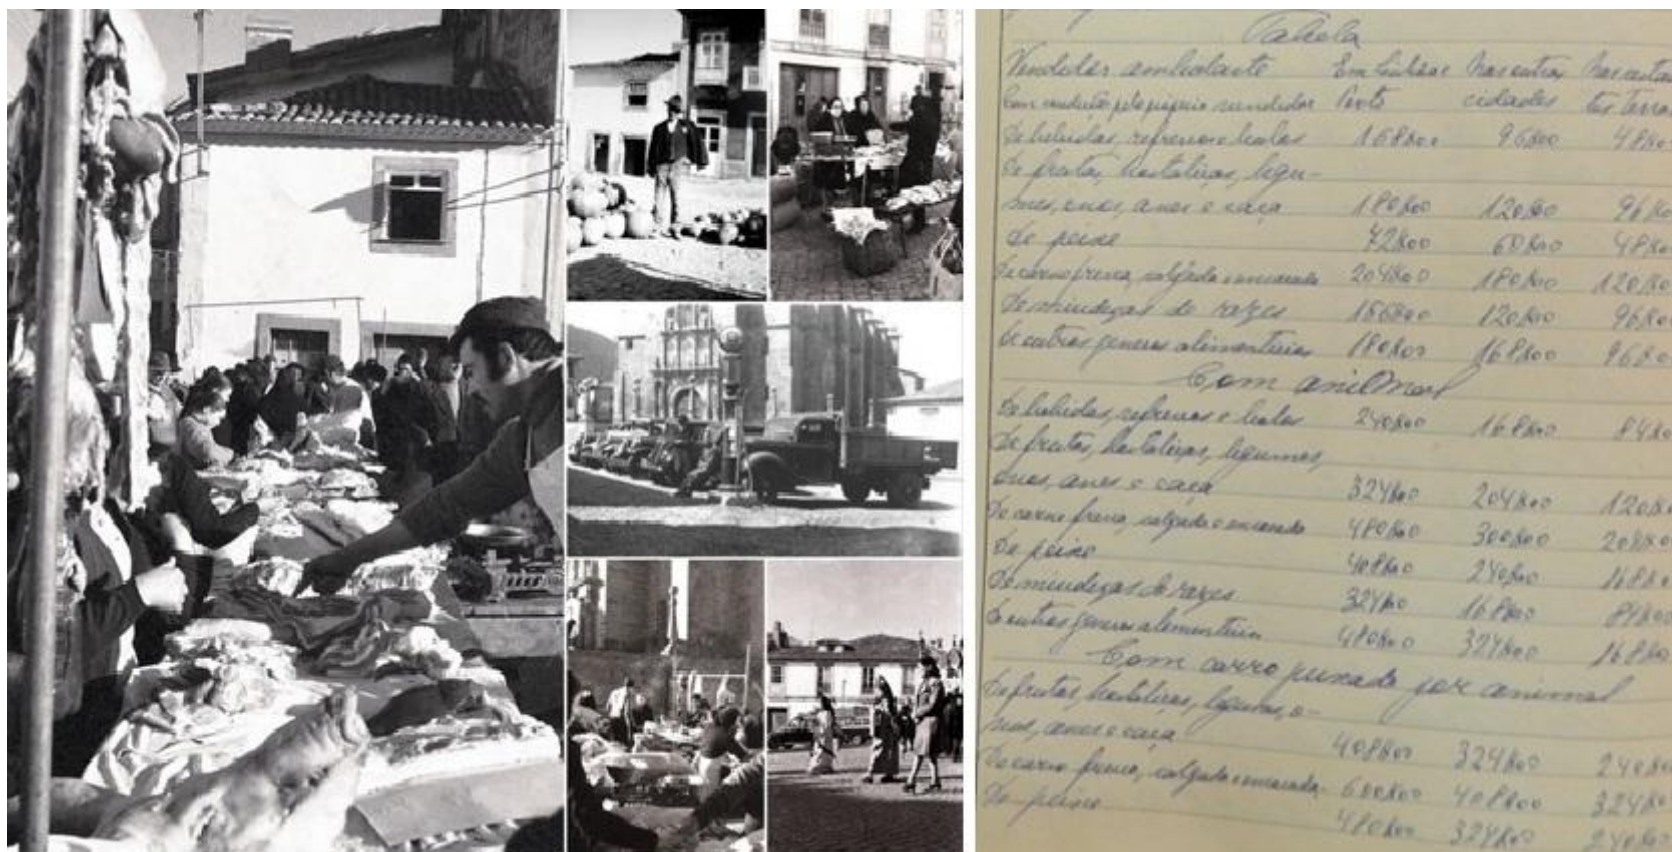 Tabela
Vendedor ambulante Em Lisboa e Nas outras Nas outras
Com condução pelo próprio vendedor Porto cidades terras
De bebidas, refrescos e bolos 168$00 96$00 48$00
De frutas, hortaliças, legu-
mes, ovos, aves e caça 180$00 120$00 96$00
De peixe 72$00 60$00 48$00
De carne fresca, salgada e ensacada 204$00 180$00 120$00
De miudezas de rezes 120$00 96$00
De outros generos alimenticios 180$00 168$00 96$00
Com animal
De bebidas, refrescos e bolos 240$00 168$00 84$00
De frutas, hortaliças, legumes,
ovos, aves e caça 324$00 204$00 120$00
De carne fresca, salgada e ensacada 480$00 300$00 208$00
De peixe 408$00 240$00 168$00
De miudezas de rezes 324$00 168$00 84$00
De outros generos alimenticios 480$00 324$00 168$00
Com carro puxado por animal
De frutas, hortaliças, legumes, o-
vos, aves e caça 408$00 324$00 240$00
De carne fresca, salgada e ensacada 600$00 408$00 324$00
De peixe 480$00 324$00 240$00